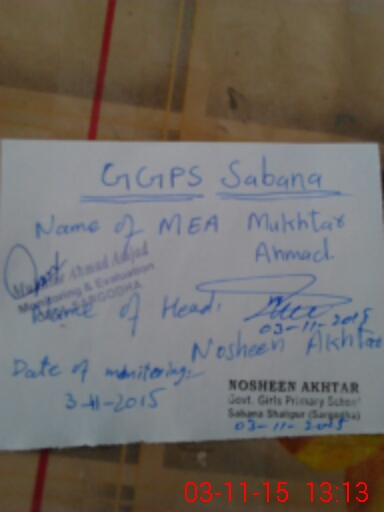 GGPS Sabana
Name of MEA Mukhtar
Ahmad.
Ahmad Amjad
Monitoring & Evaluation
SARGODHA
Name of Head.
03-11-2015
Nosheen Akhtar
Date of monitoring:-
3-11-2015
NOSHEEN AKHTAR
Govt. Girls Primary School
Sabana Shahpur (Sargodha)
03-11-2015
03-11-15 13:13